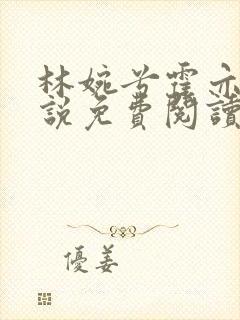 林婉兮霍亦
說免費閱讀
優姜